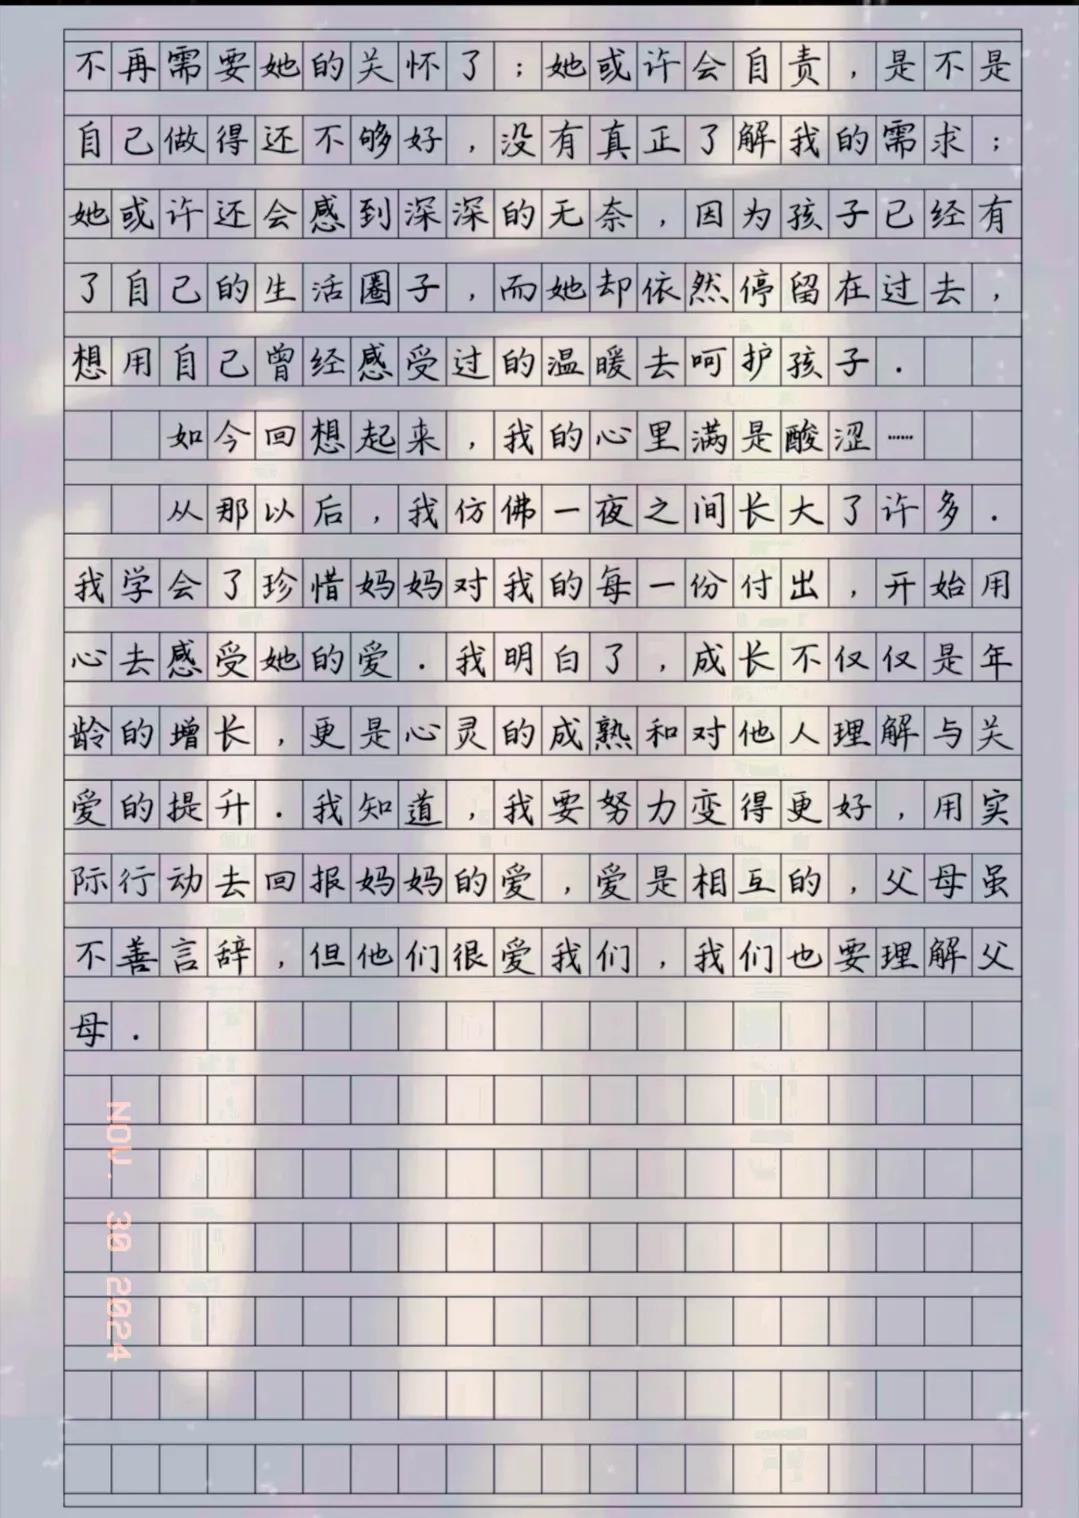 不再需要她的关怀了；她或许会自责，是不是
自己做得还不够好，没有真正了解我的需求；
她或许还会感到深深的无奈，因为孩子已经有
了自己的生活圈子，而她却依然停留在过去，
想用自己曾经感受过的温暖去呵护孩子．
如今回想起来，我的心里满是酸涩……
从那以后，我仿佛一夜之间长大了许多．
我学会了珍惜妈妈对我的每一份付出，开始用
心去感受她的爱．我明白了，成长不仅仅是年
龄的增长，更是心灵的成熟和对他人理解与关
爱的提升．我知道，我要努力变得更好，用实
际行动去回报妈妈的爱，爱是相互的，父母虽
不善言辞，但他们很爱我们，我们也要理解父
母．
NOV. 30 2024